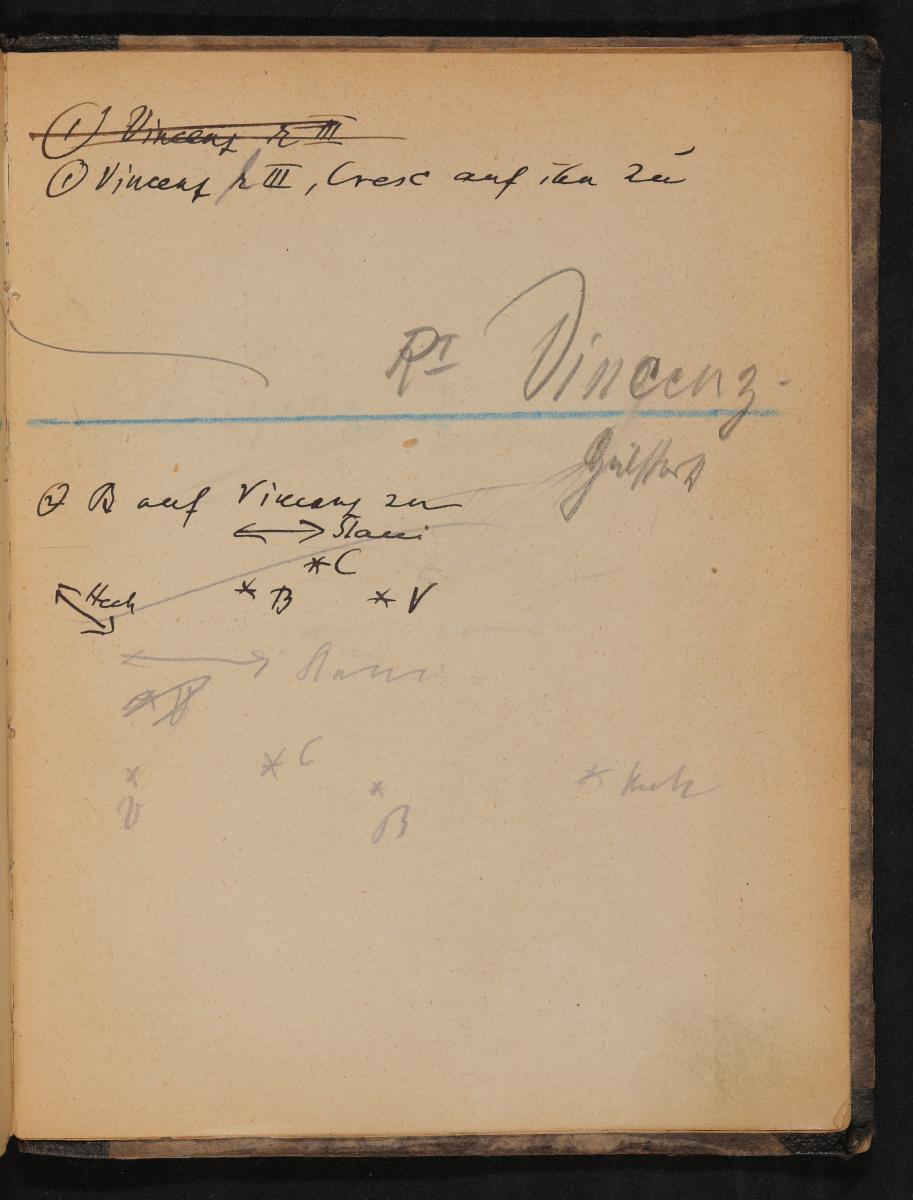 1) Vincenz r III
1) Vincenz r III, Cresc auf ihn zu
RI Vincenz.
2) B auf Vincenz zu
Stani
* C
Hech
* B * V
Stani
* V
* C
* Hech
* V
* B